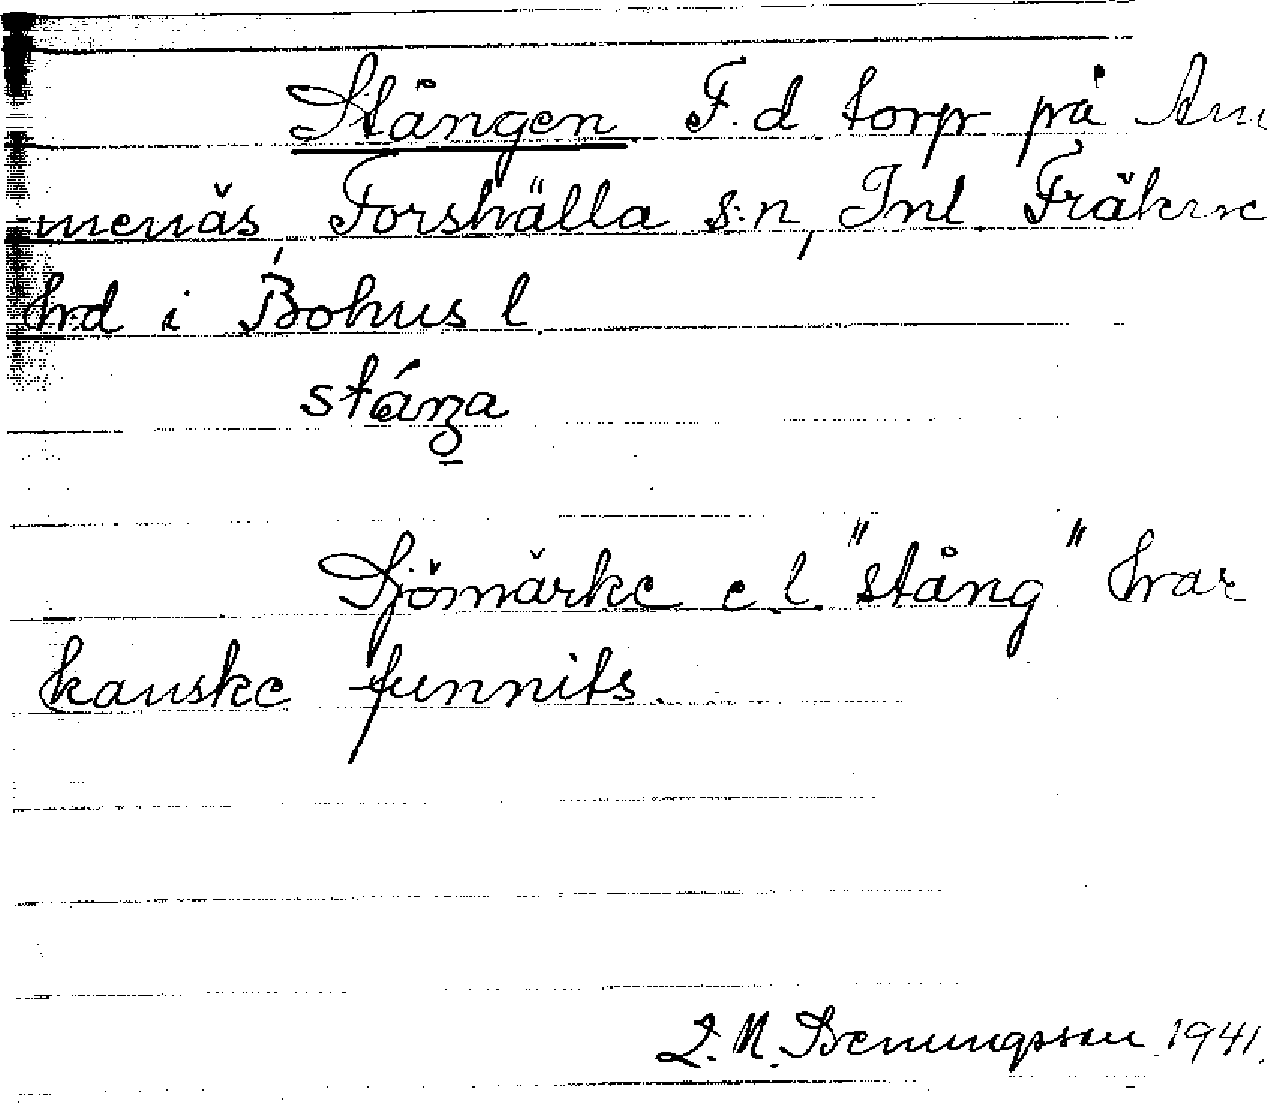 Stången F. d torp på Am
menäs, Forshälla s:n, Inl. Fräkne
hrd i Bohus l.
Sjömärke e. l. "stång" har
kanske funnits.
1941.